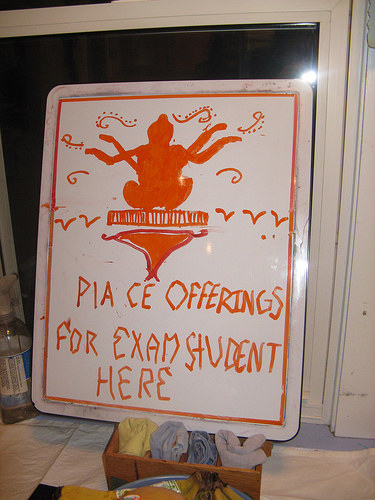 PIACE OFFERINGS
FOR EXAM STUDENT
HERE